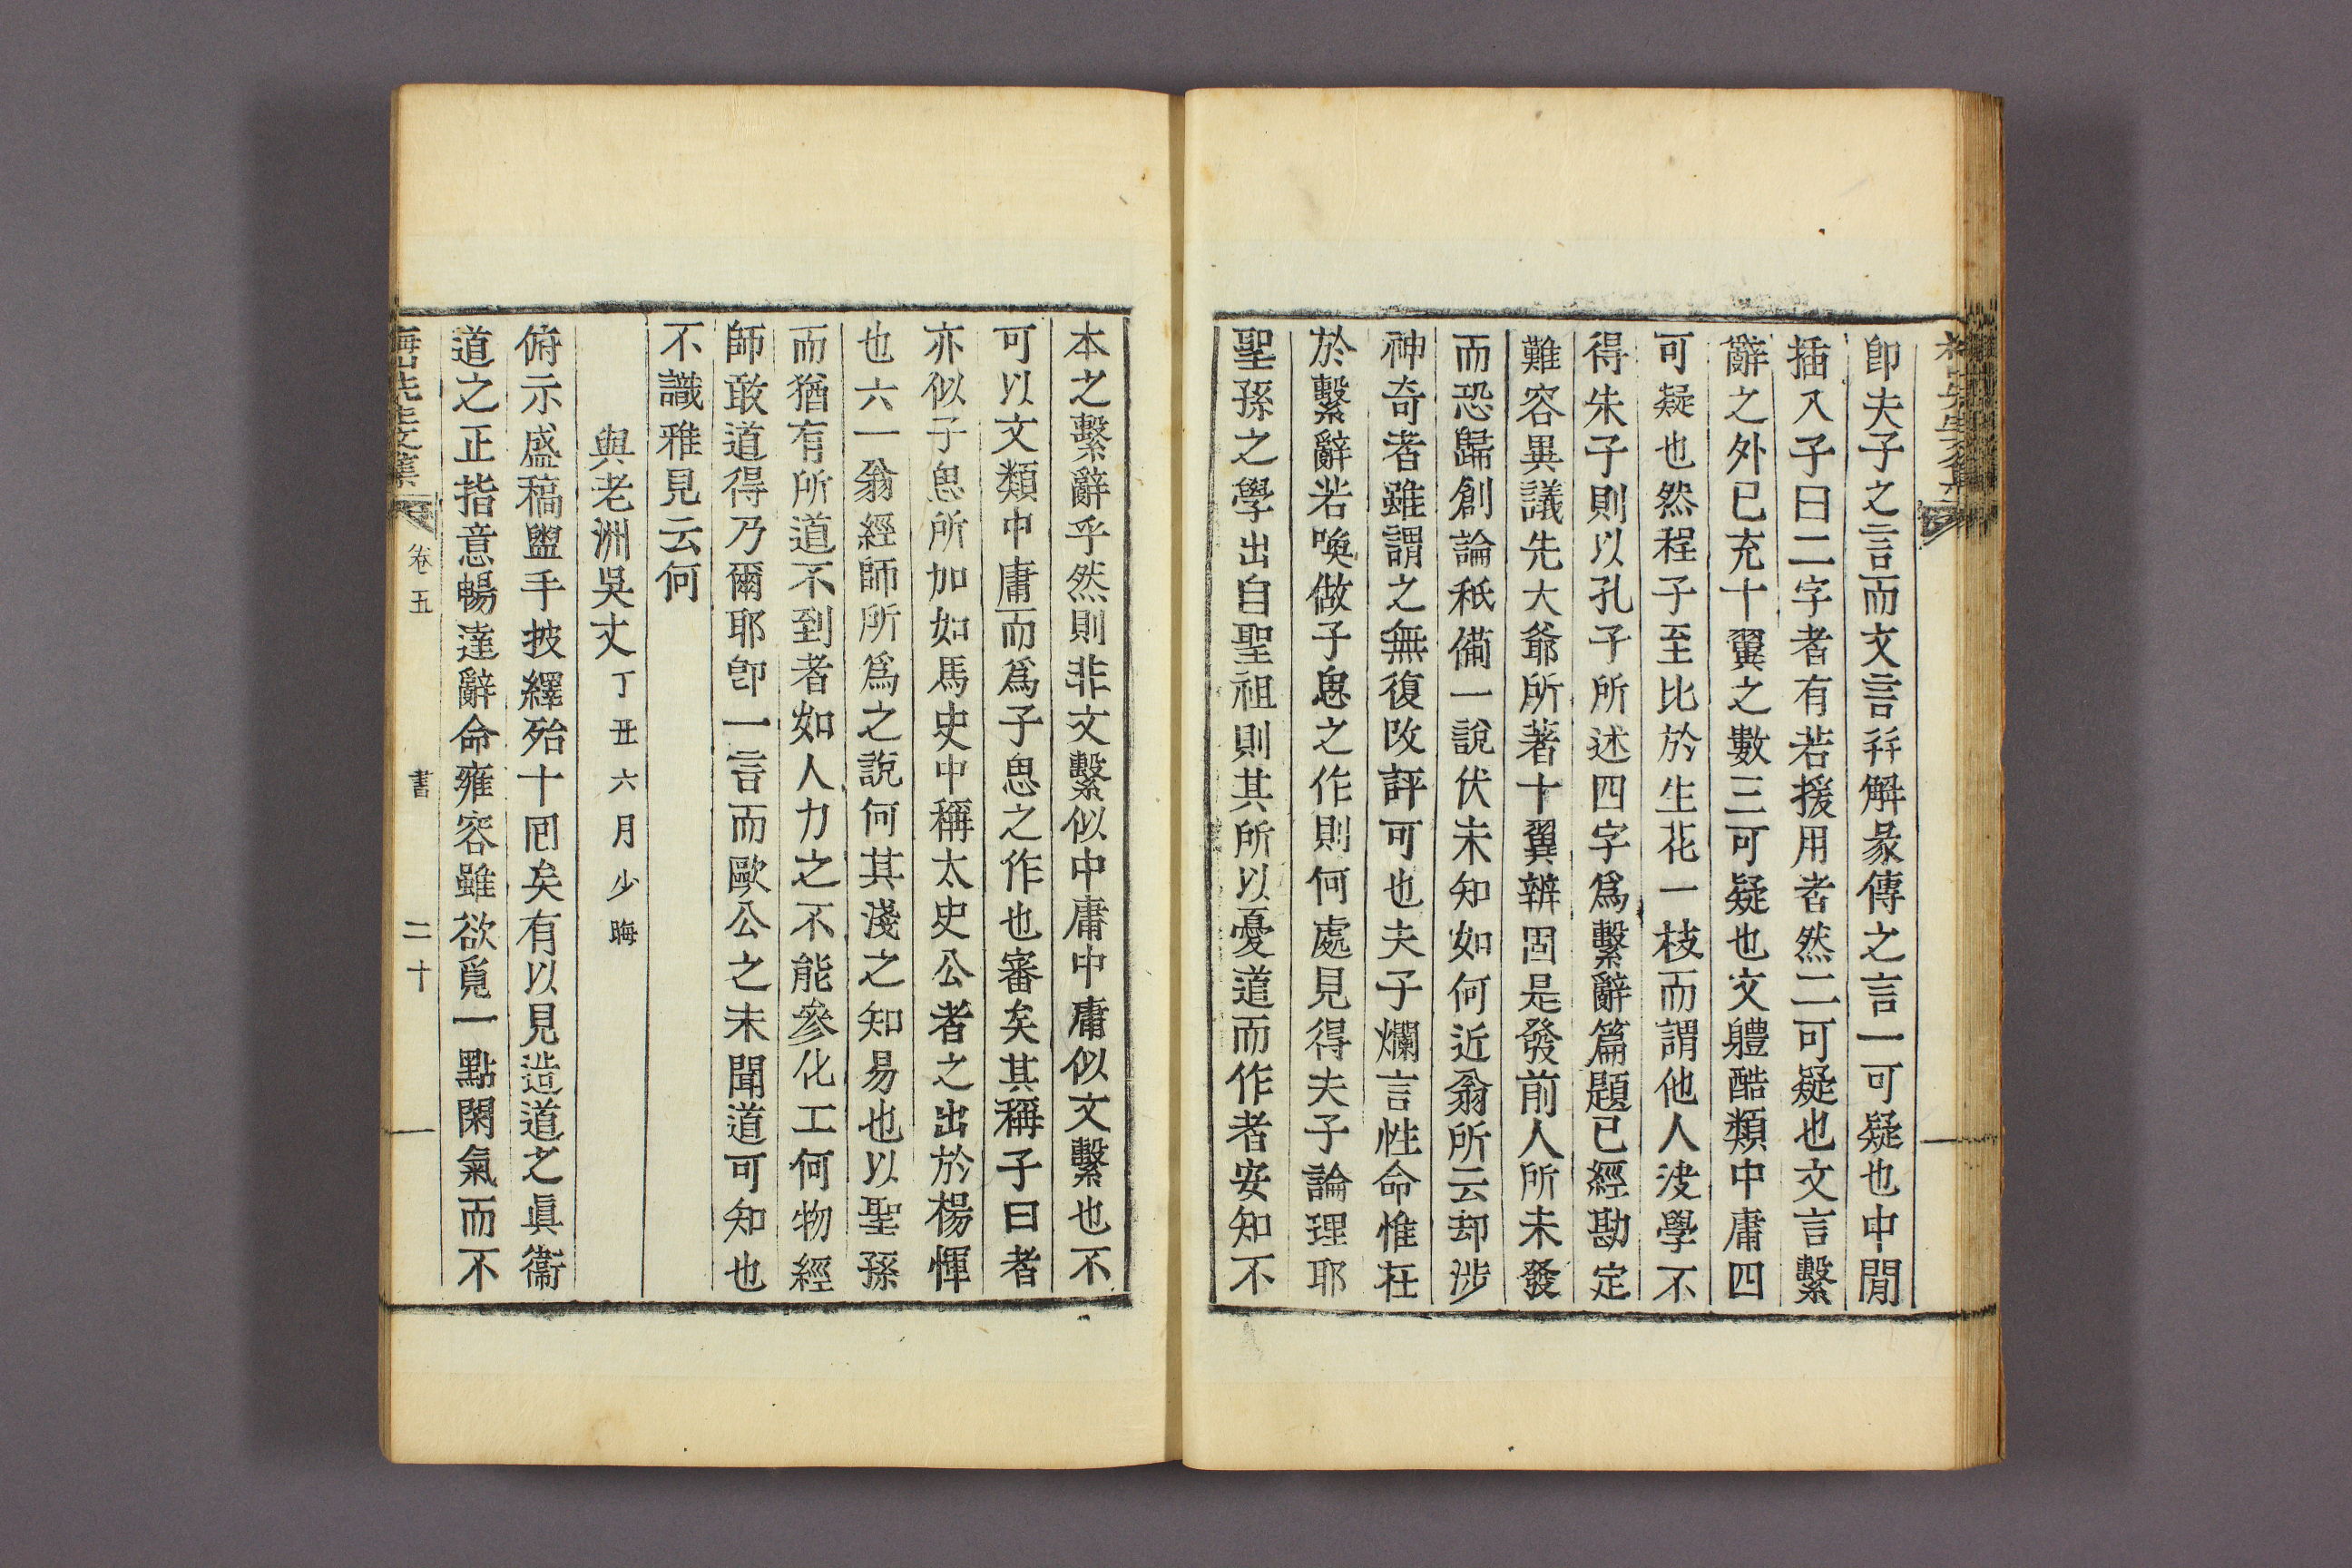 卽夫子之言而文言并解彖傳之言一可疑也中間
插入子曰二字者有若援用者然二可疑也文言繫
辭之外已充十翼之數三可疑也文軆酷類中庸四
可疑也然程子至比於生花一枝而謂他人沒學不
得朱子則以孔子所述四字爲繫辭篇題已經勘定
難容異議先大爺所著十翼辨固是發前人所未發
而恐歸創論秪備一說伏未知如何近翁所云却涉
神奇者雖謂之無復改評可也夫子爛言性命惟在
於繫辭若喚做子思之作則何處見得夫子論理耶
聖孫之學出自聖祖則其所以憂道而作者安知不
本之繫辭乎然則非文繫似中庸中庸似文繫也不
可以文類中庸而爲子思之作也審矣其稱子曰者
亦似子思所加如馬史中稱太史公者之出於楊惲
也六一翁經師所爲之說何其淺之知易也以聖孫
而猶有所道不到者如人力之不能參化工何物經
師敢道得乃爾耶卽一言而歐公之未聞道可知也
不識雅見云何
與老洲吳丈丁丑六月少晦
俯示盛稿盥手披繹殆十回矣有以見造道之眞衞
道之正指意暢達辭命雍容雖欲覓一點閑氣而不
梅山先生文集 卷五 書 二十